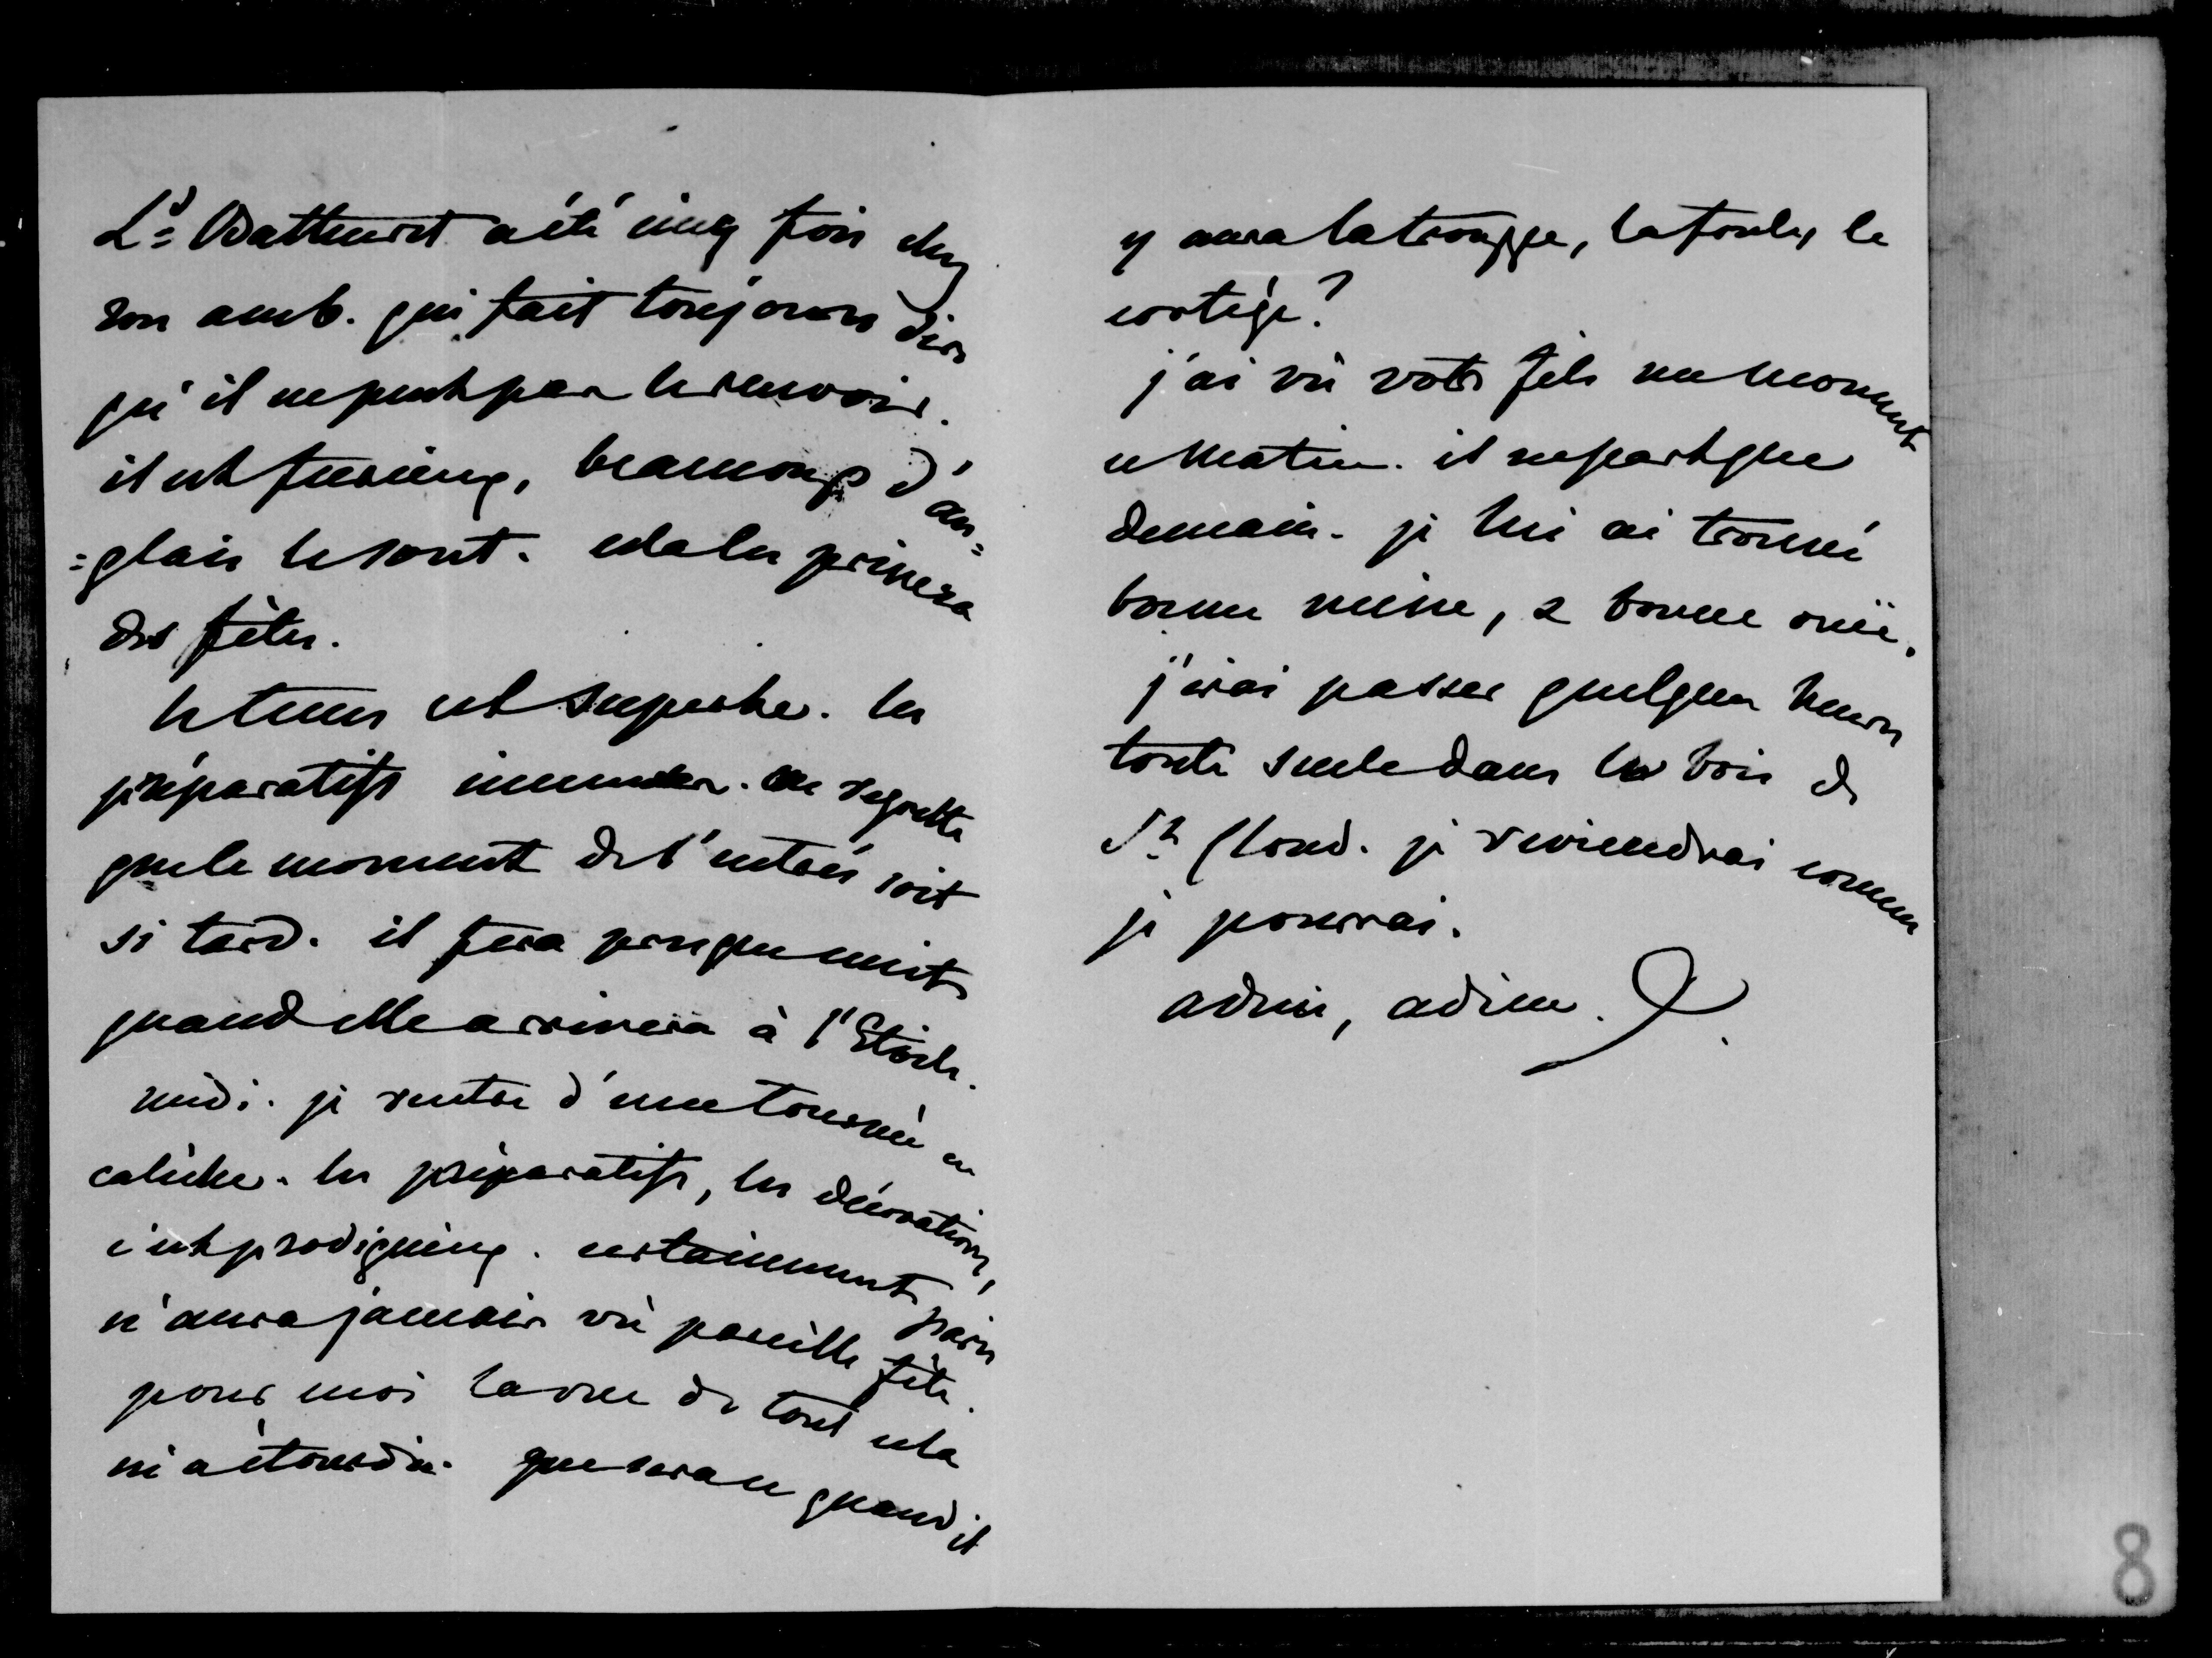 Ld Batthurst a été cinq fois chez
son amb. qui fait toujours dire
qu'il ne peut pas le recevoir.
il est furieux, beaucoup d'an=
=glais le sont. cela les privera
des fêtes.
le tems est superbe. les
préparatifs immenses. on regrette
que le moment de l'entrée soit
si tard. il fera presque nuit
quand elle arrivera à l'Etoile.
midi. je rentre d'une tournée en
calèche. les préparatifs, les décorations,
c'est prodigieux. certainement Paris
n'aura jamais vû pareille fête.
pour moi la vue de tout cela
m'a étourdie. que sera ce quand il
y aura la trouppe, la foule, le
cortège?
j'ai vû votre fils un moment
ce matin. il ne part que
demain. je lui ai trouvé
bonne mine, & bonne ouïe.
j'irai passer quelques heures
toute seule dans les bois de
St Cloud. je reviendrai comme
je pourrai.
adieu, adieu.
8